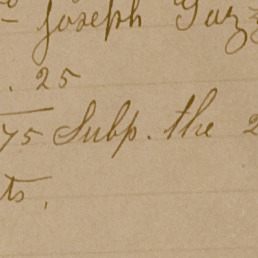 Joseph
. 25
75 Subp. the 2
ts.